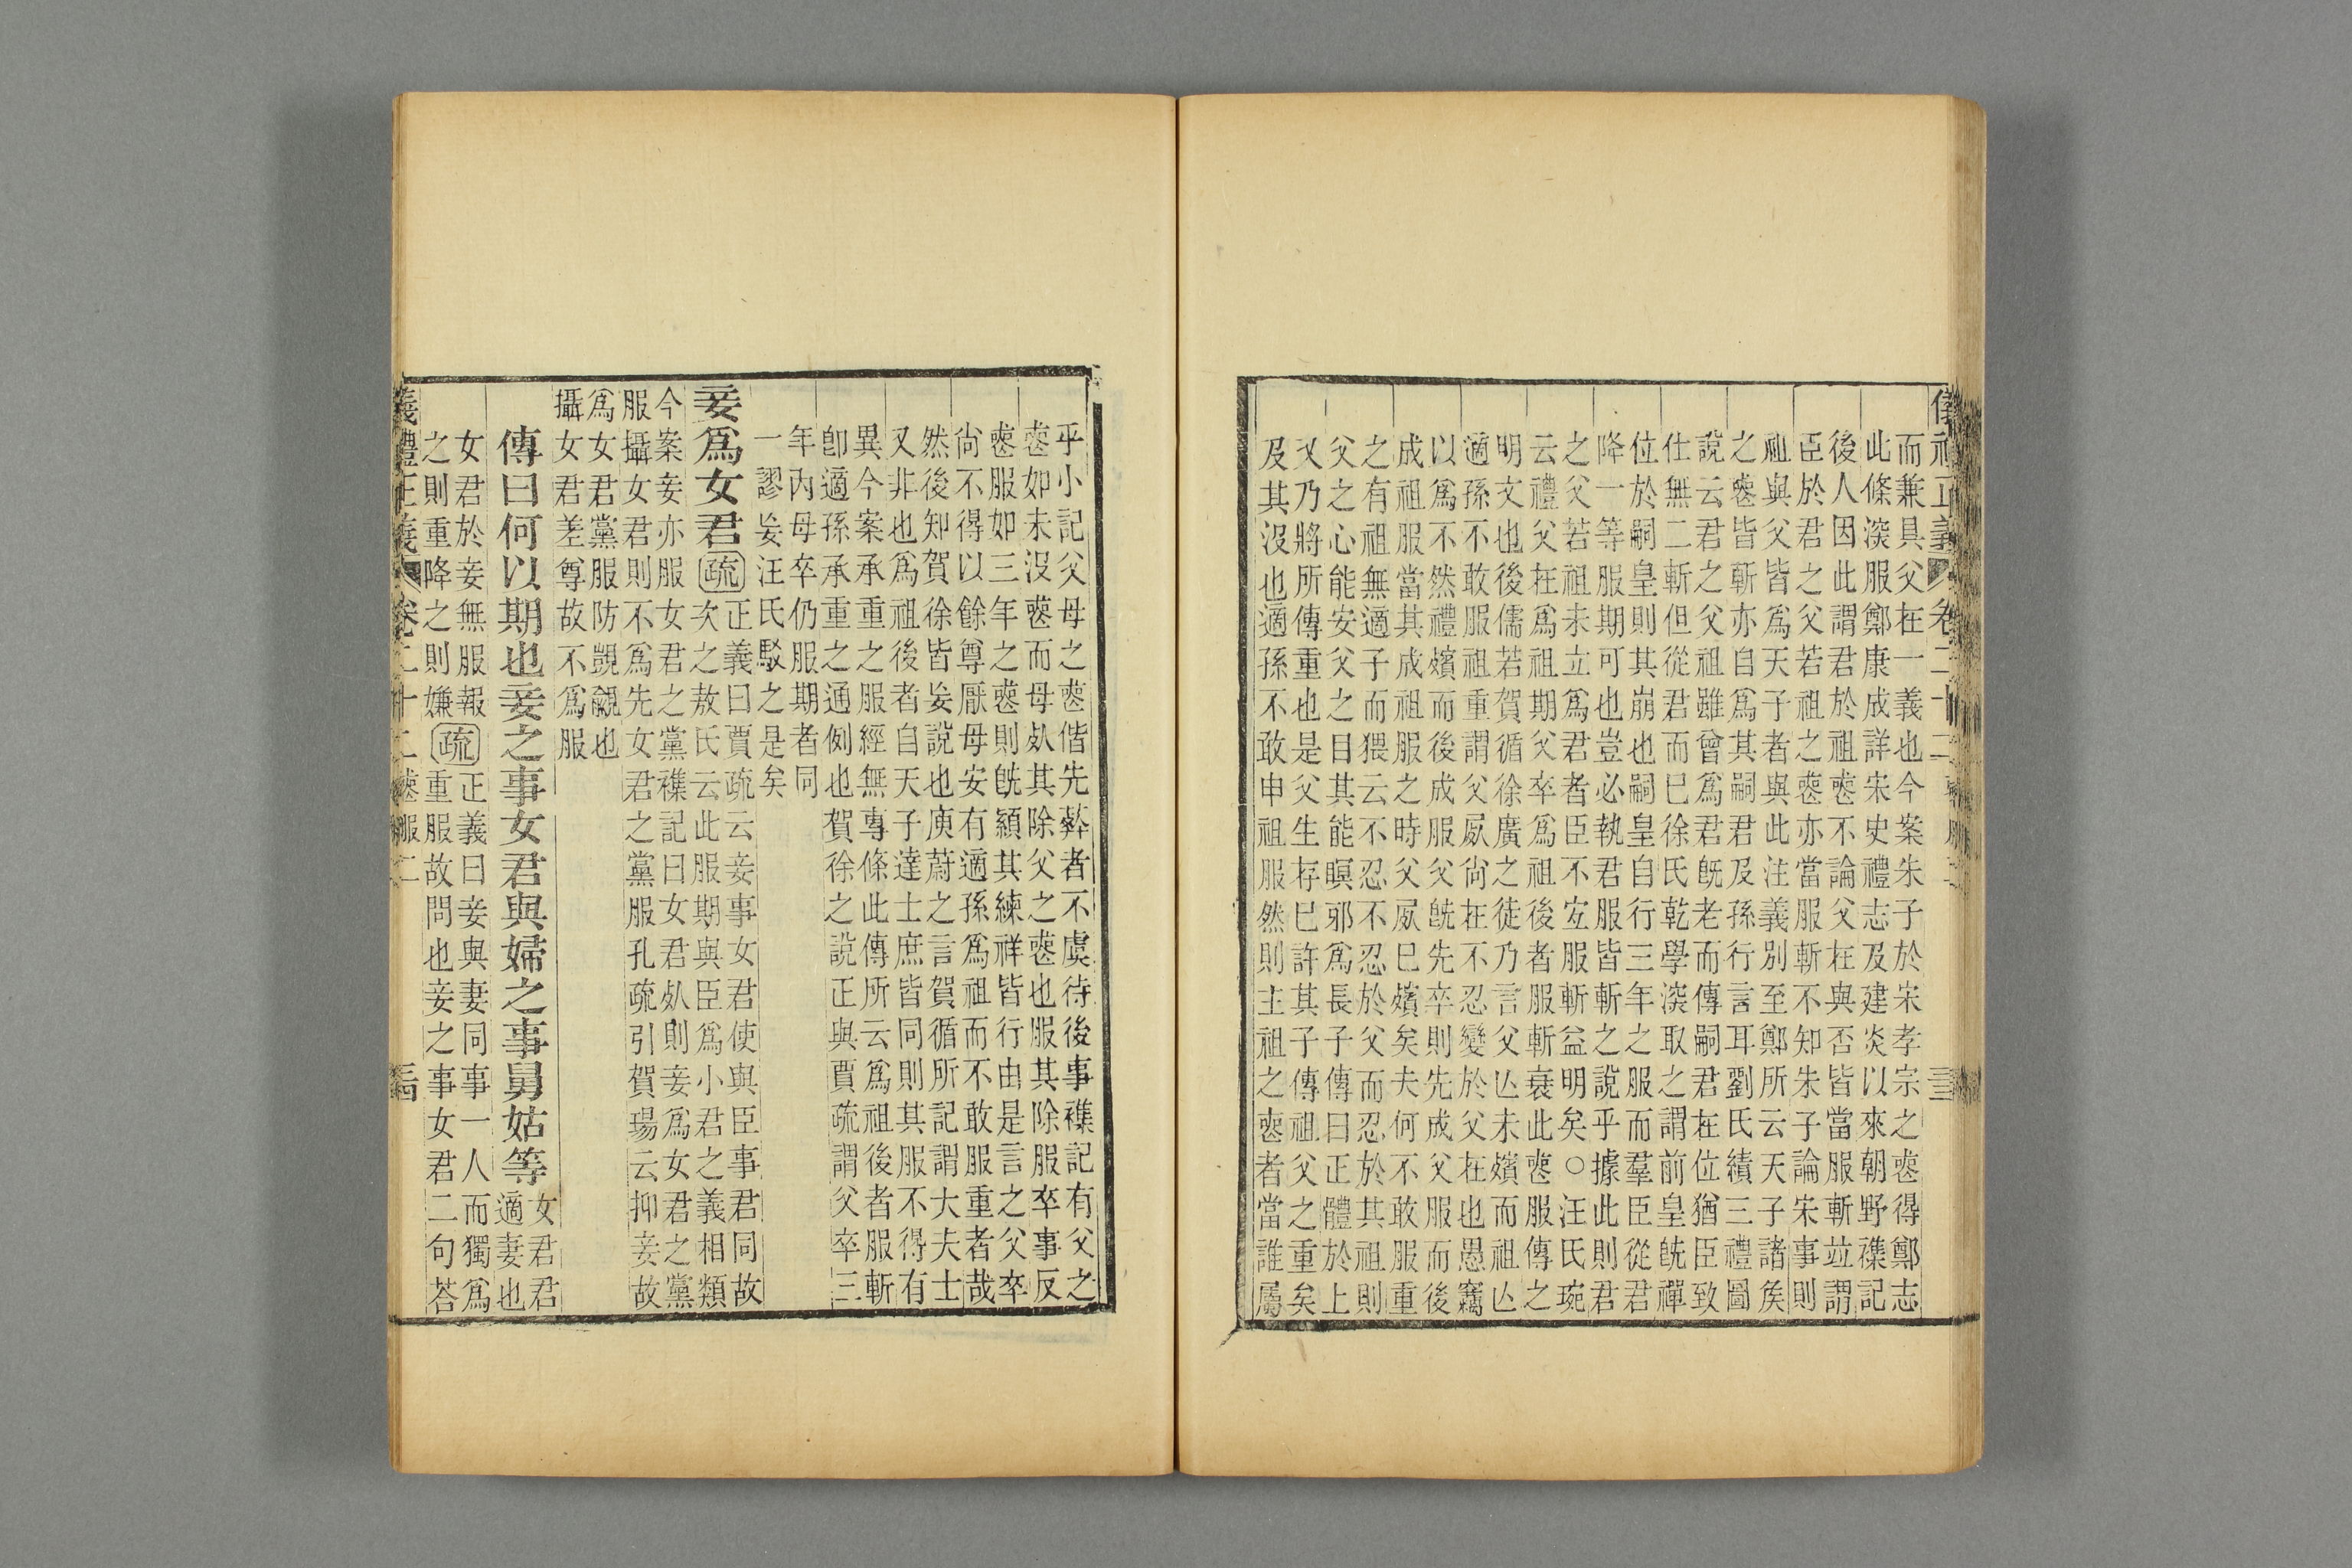 儀禮正義 卷二十二
而兼具父在一義也今案朱子於宋孝宗之喪得鄭志
此條深服鄭康成詳宋史禮志及建炎以來朝野襍記
後人因此謂君於祖喪不論父在與否皆當服斬竝謂
臣於君之父若祖之喪亦當服斬不知朱子論宋事則
祖與父皆爲天子者與此注義別至鄭所云天子諸矦
之喪皆斬亦自爲其嗣君及孫行言耳劉氏績三禮圖
說云君之父祖雖曾爲君旣老而傳嗣君在位猶臣致
仕無二斬但從君而巳徐氏乾學深取之謂前皇旣禪
位於嗣皇則其崩也嗣皇自行三年之服而羣臣從君
降一等服期可也豈必執君服皆斬之說乎據此則君
之父若祖未立爲君者臣不宜服斬益明矣○汪氏琬
云禮父在爲祖期父卒爲祖後者服斬衰此喪服傳之
明文也後儒若賀循徐廣之徒乃言父亾未殯而祖亾
適孫不敢服祖重謂父屍尙在不忍變於父在也愚竊
以爲不然禮殯而後成服父旣先卒則先成父服而後
成祖服當其成祖服之時父屍巳殯矣夫何不敢服重
之有祖無適子而猥云不忍不忍於父而忍於其祖則
父之心能安父之目其能瞑邪爲長子傳曰正體於上
又乃將所傳重也是父生存巳許其子傳祖父之重矣
及其沒也適孫不敢申祖服然則主祖之喪者當誰屬
乎小記父母之喪偕先葬者不虞待後事襍記有父之
喪如未沒喪而母死其除父之喪也服其除服卒事反
喪服如三年之喪則旣顈其練祥皆行由是言之父卒
尙不得以餘尊厭母安有適孫爲祖而不敢服重者哉
然後知賀徐皆妄說也庾蔚之言賀循所記謂大夫士
又非也爲祖後者自天子達士庶皆同則其服不得有
異今案承重之服經無專條此傳所云爲祖後者服斬
卽適孫承重之通例也賀徐之說正與賈疏謂父卒三
年內母卒仍服期者同
一謬妄汪氏駁之是矣
妾爲女君 疏 正義曰賈疏云妾事女君使與臣事君同故
次之敖氏云此服期與臣爲小君之義相類
今案妾亦服女君之黨襍記曰女君死則妾爲女君之黨
服攝女君則不爲先女君之黨服孔疏引賀瑒云抑妾故
爲女君黨服防覬覦也
攝女君差尊故不爲服
傳曰何以期也妾之事女君與婦之事舅姑等 女君君
適妻也
女君於妾無服報
之則重降之則嫌 疏 正義曰妾與妻同事一人而獨爲
重服故問也妾之事女君二句荅
義禮正義 卷二十二 喪服二